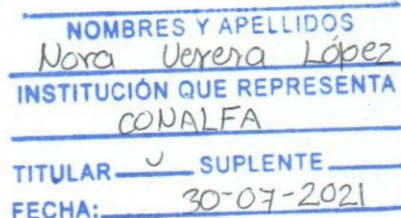 NOMBRES Y APELLIDOS
Nora Verera López
INSTITUCIÓN QUE REPRESENTA
CONALFA
TITULAR ✓ SUPLENTE
FECHA: 30-07-2021